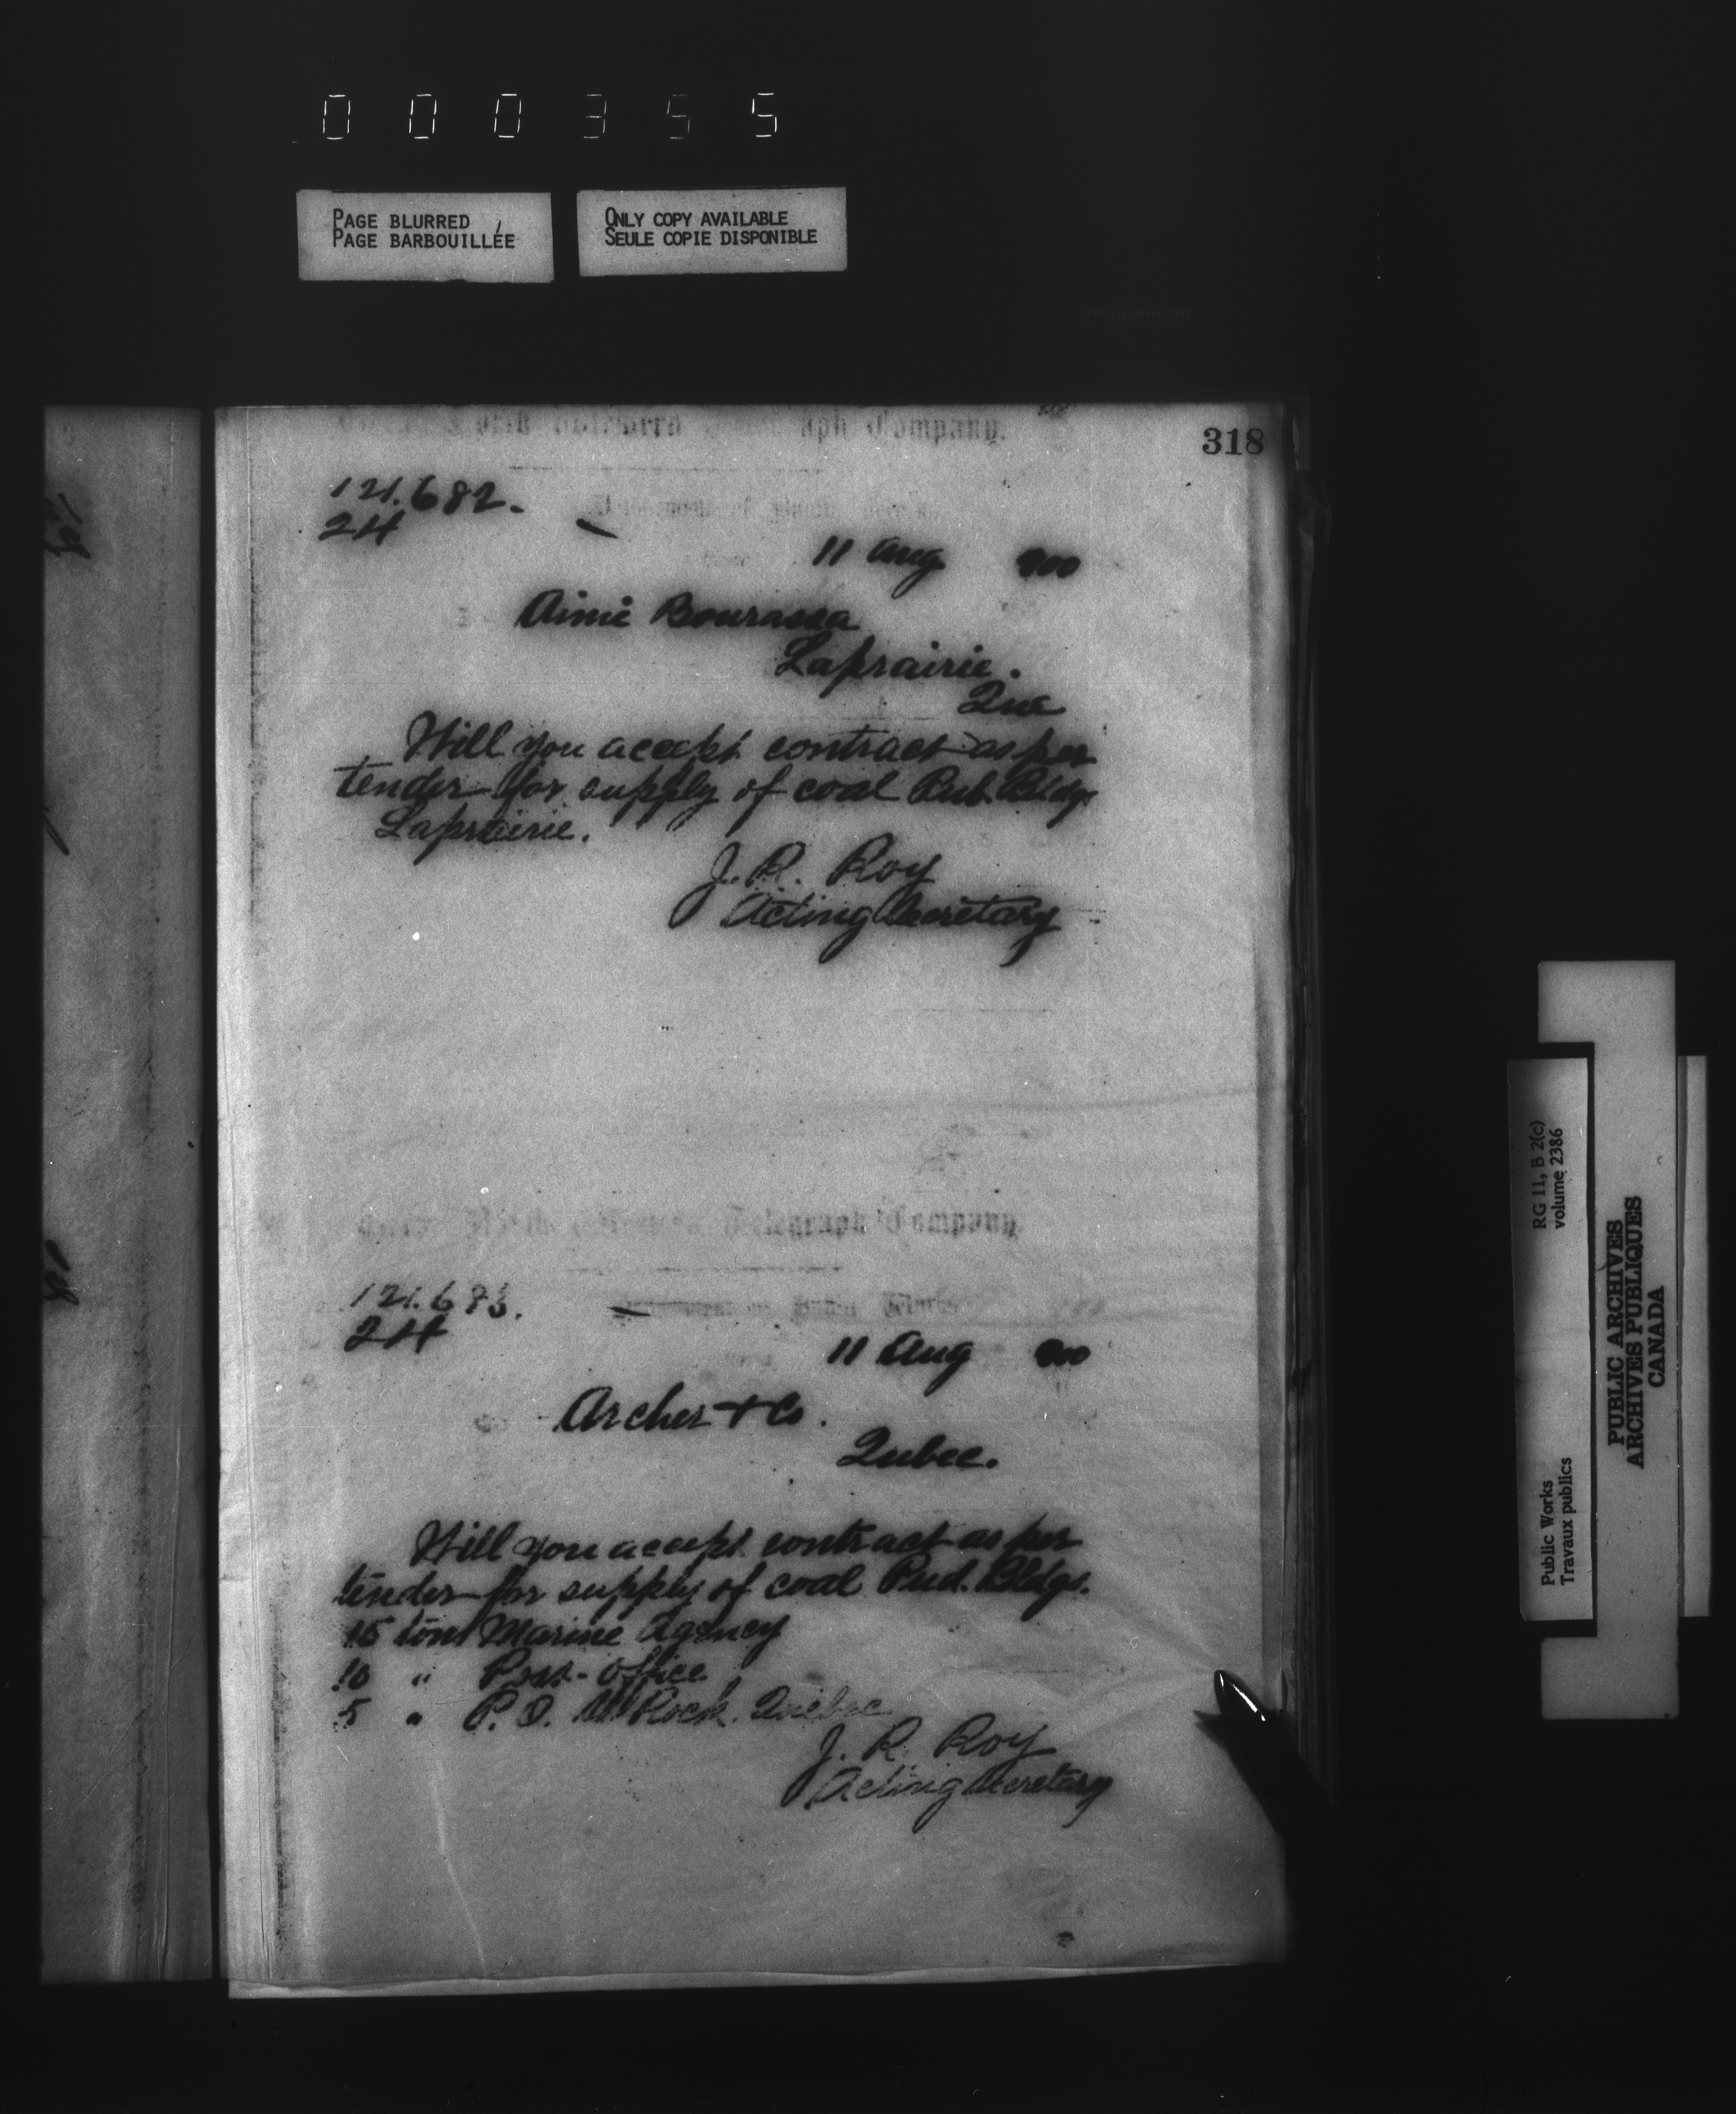 000355
PAGE BLURRED
PAGE BARBOUILLÉE
ONLY COPY AVAILABLE
SEULE COPIE DISPONIBLE
318
Telegraph Company.
121.682.
24
11 Aug 900
Aimé Bourassa
Laprairie.
Que
Will you accept contract as per
tender for supply of coal Pub. Bldg.
Laprairie.
J. R. Roy
Acting Secretary
Telegraph Company
121.683.
24
11 Aug 900
Archer & Co.
Qubec.
Will you accept contract as per
tender for supply of coal Pud. Bldgs.
15 tons Marine Agency
10 " Post-Office
5 " P.O. Rock. Quebec
J. R. Roy
Acting Secretary
RG 11, B 2(c)
volume 2386
Public Works
Travaux publics
PUBLIC ARCHIVES
ARCHIVES PUBLIQUES
CANADA